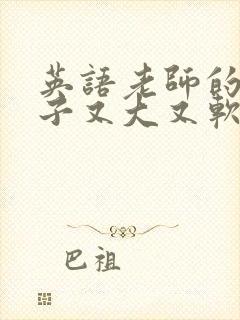 英語老師的
子又大又軟
巴祖